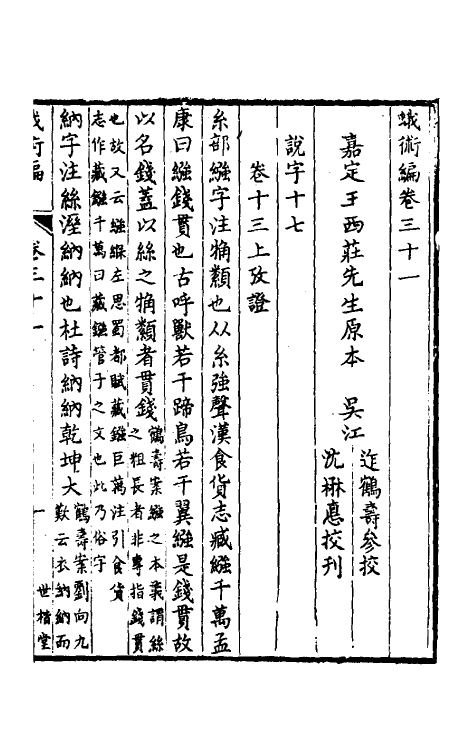 蛾術編卷三十一
嘉定王西莊先生原本　吳江
迮鶴壽參挍
沈楙悳挍刊
說字十七
卷十三上攷證
糸部繦字注觕纇也从糸強聲漢食貨志臧繦千萬孟
康曰繦錢貫也古呼獸若干蹄鳥若干翼繦是錢貫故
以名錢蓋以絲之觕纇者貫錢
鶴壽案繦之本義謂絲
之粗長者非專指錢貫
也故又云繦緥左思蜀都賦藏鏹巨萬注引食貨
志作藏鏹千萬曰藏鏹管子之文也此乃俗字
納字注絲溼納納也杜詩納納乾坤大
鶴壽案劉向九
歎云衣納納而
蛾術編　卷三十一　一　世楷堂